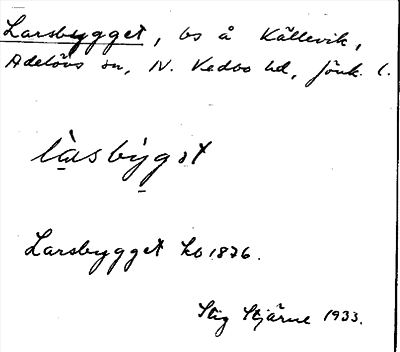 Larsbygget, bs å Källevik,
Adelövs sn, N. Vedbo hd, Jönk. l.
làsbýgət
Larsbygget kb 1876.
Stig Stjärne 1933.